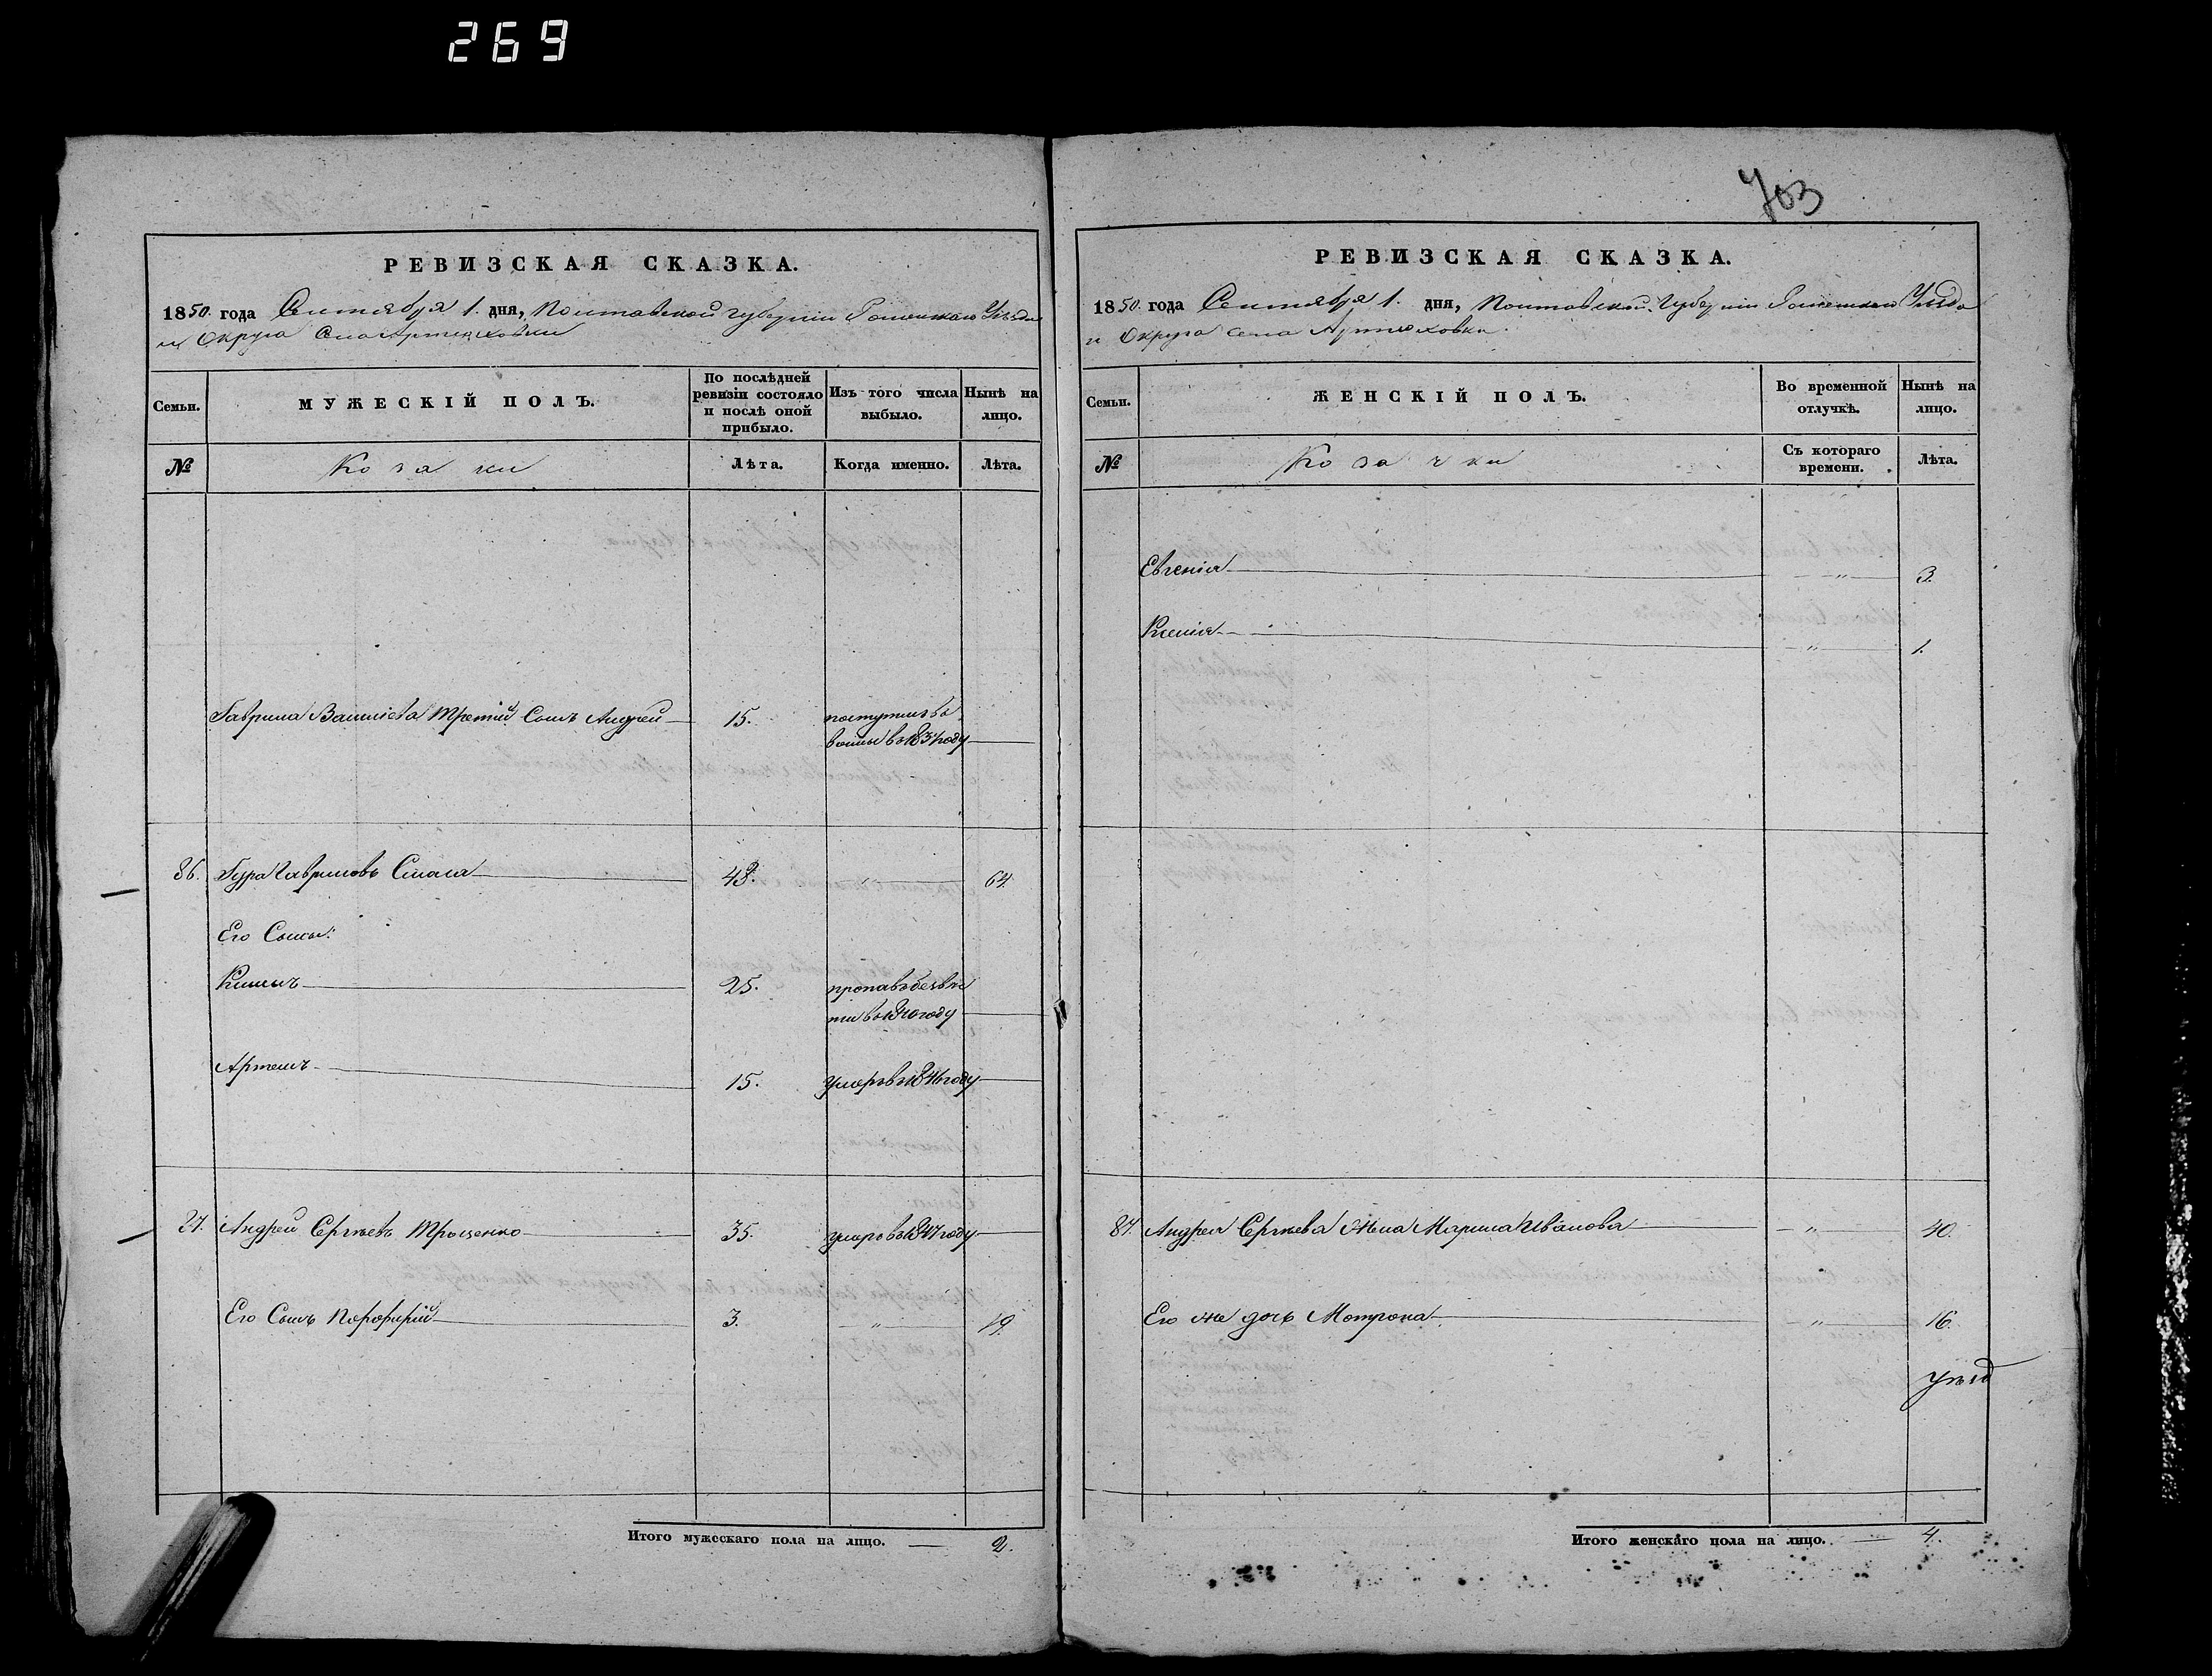 269
703
РЕВИЗСКАЯ СКАЗКА.
1850 года Сентября 1. дня, Полтавской Губернiи Роменскаго Уѣзда
и Округа Села Артюховки
Семьи.
МУЖЕСКІЙ ПОЛЪ.
По послѣдней ревизіи состояло и послѣ оной прибыло.
Изъ того числа выбыло.
Нынѣ на лицо.
№
Козаки
Лѣта.
Когда именно.
Лѣта.
Гаврила Василіева третій Сынъ Андрей 15. поступилъ въ
въ 1834 году
86. Гавриловъ 48. " 64.
Его Сыны:
25. пропавъ безъ вѣ
сти въ 1840 году
Артемъ 15. умеръ въ 1846 году
27. Андрей Сергѣевъ Троценко 35. умеръ въ 1847 году
Его Сынъ Порфирій 3. " 19.
Итого мужескаго пола на лицо. 2.
РЕВИЗСКАЯ СКАЗКА.
1850 года Сентября 1. дня, Полтавской Губерніи Роменскаго Уѣзда
и Округа села Артюховки.
Семьи.
ЖЕНСКІЙ ПОЛЪ.
Во временной отлучкѣ.
Нынѣ на лицо.
№
Козачки
Съ котораго времени.
Лѣта.
Евгенія " 3.
Ксенія " 1.
87. Андрея Сергѣева жена Марина Иванова " 40.
Его же дочь Мотрона " 16.
Итого женскаго пола на лицо. 4.